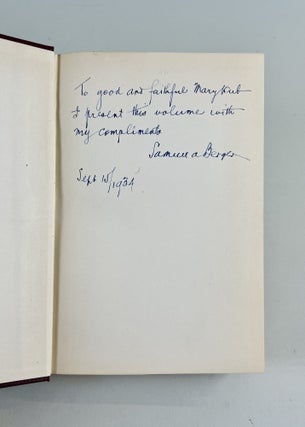 To good and faithful Mary Kirk
I present this volume with
my compliments
Samuel A Berger
Sept 15/1934